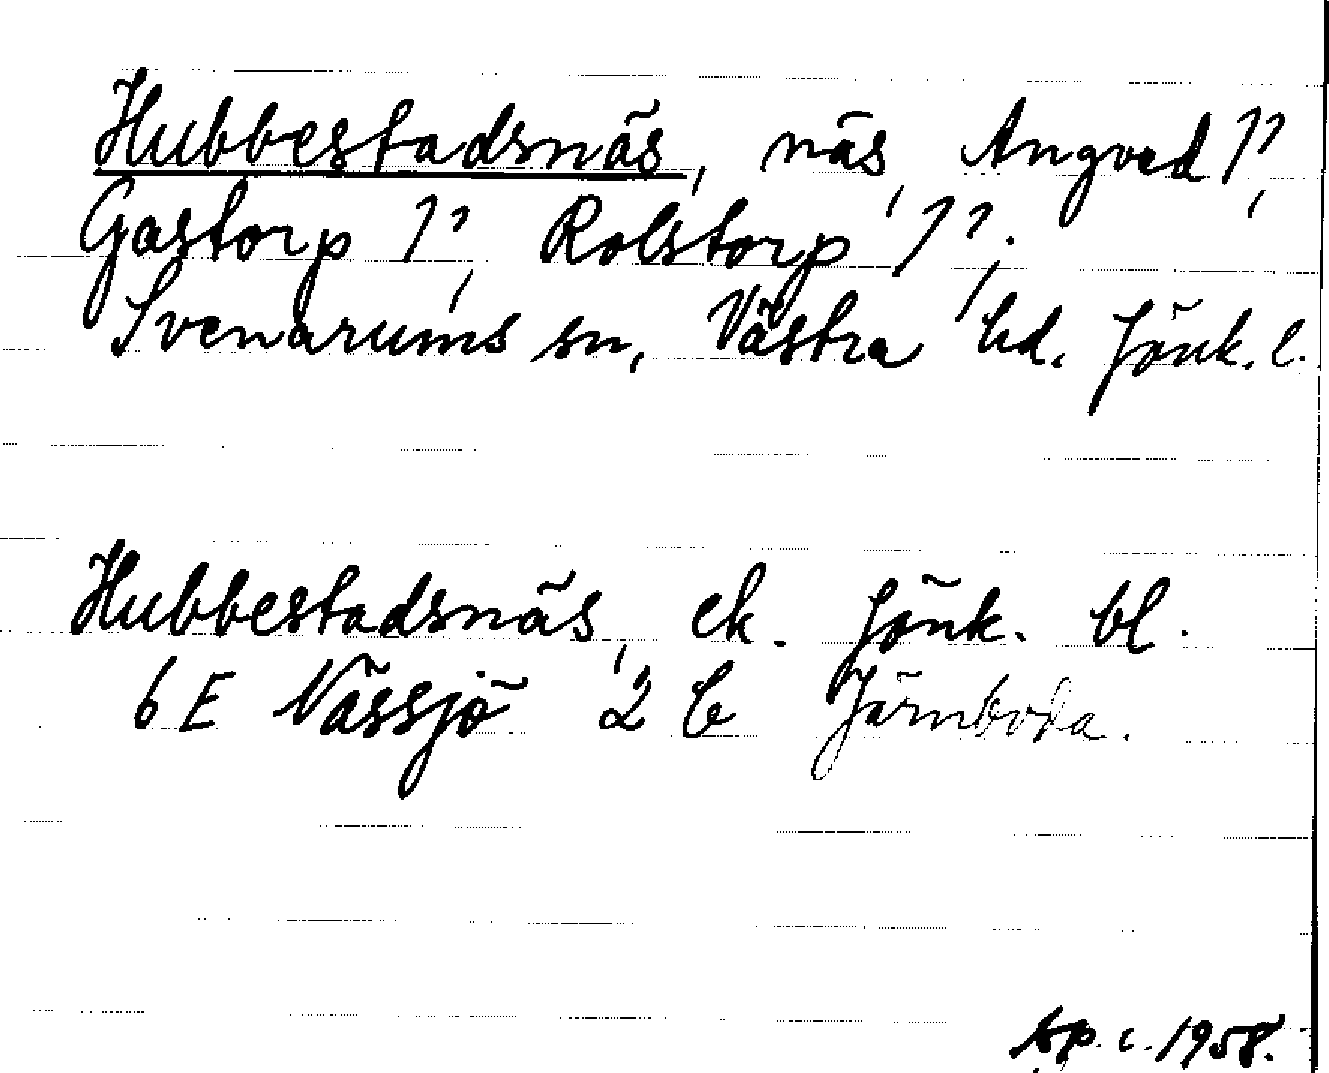 Hubbestadsnäs, näs, Angved 1?,
Gastorp 1?, Rolstorp 1?;
Svenarums sn, Västra hd. Jönk. l.
Hubbestadsnäs, ek. Jönk. bl.
6 E Nässjö 2 b Järnboda.
c. 1958.